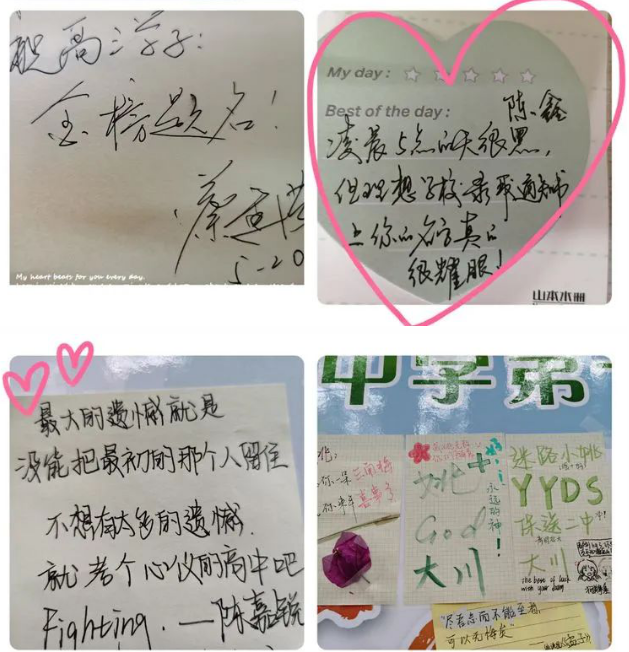 祝高三学子:
金榜题名!
5-20
My heart beats for you every day.
My day :
Best of the day :
陈鑫
凌晨5点的天很黑,
但理想学校录取通知书
上你的名字真的
很耀眼!
山本水册
最大的遗憾就是
没能把最初的那个人留住
不想有太多的遗憾.
就考个心仪的高中吧
Fighting. —陈嘉锐
中学第一
God
大川
迷路小姚
YYDS
保送二中
大川
the best of luck
with your exam
"尽吾志而不能至者,
可以无悔矣"